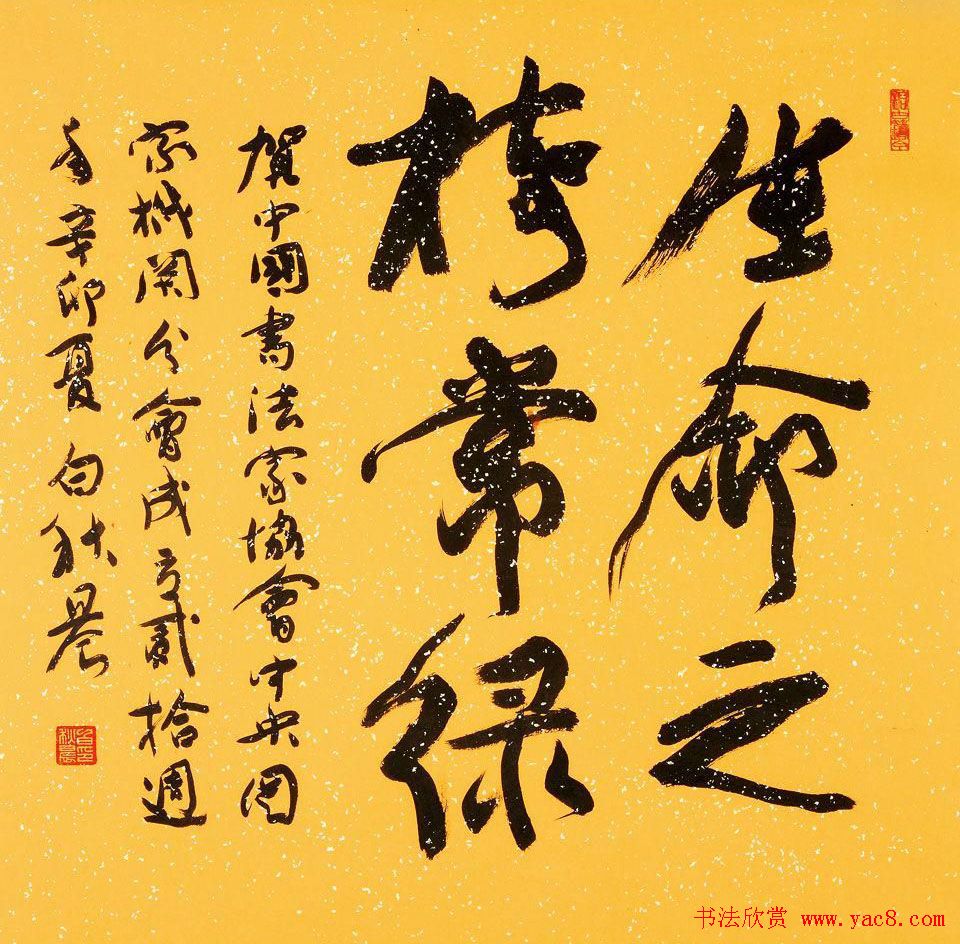 生命之
樹常绿
賀中國書法家協會中央国
家機関分會成立貳拾週
年辛卯夏白秋晨
书法欣赏 www.yac8.com